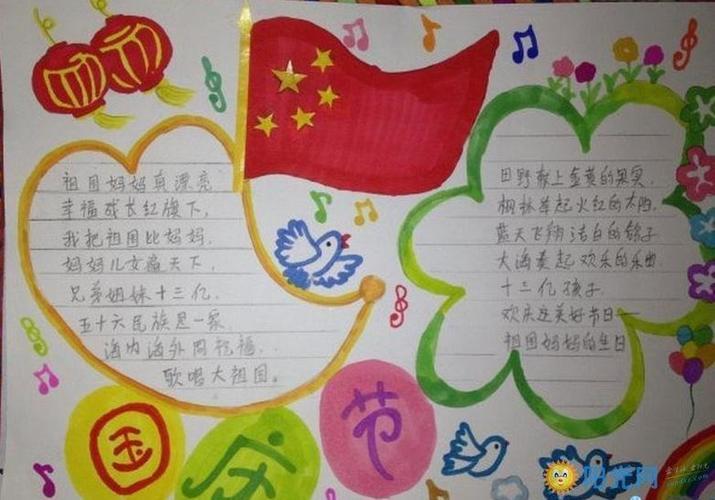 祖国妈妈真漂亮
幸福成长红旗下,
我把祖国比妈妈,
妈妈儿女遍天下,
兄弟姐妹十三亿,
五十六民族是一家,
海内海外同祝福,
歌唱大祖国。
田野献上金黄的果实,
枫林举起火红的太阳,
蓝天飞翔洁白的鸽子
大海奏起欢乐的乐曲
十三亿孩子
欢庆这美好节日——
祖国妈妈的生日
国庆节
阳光网